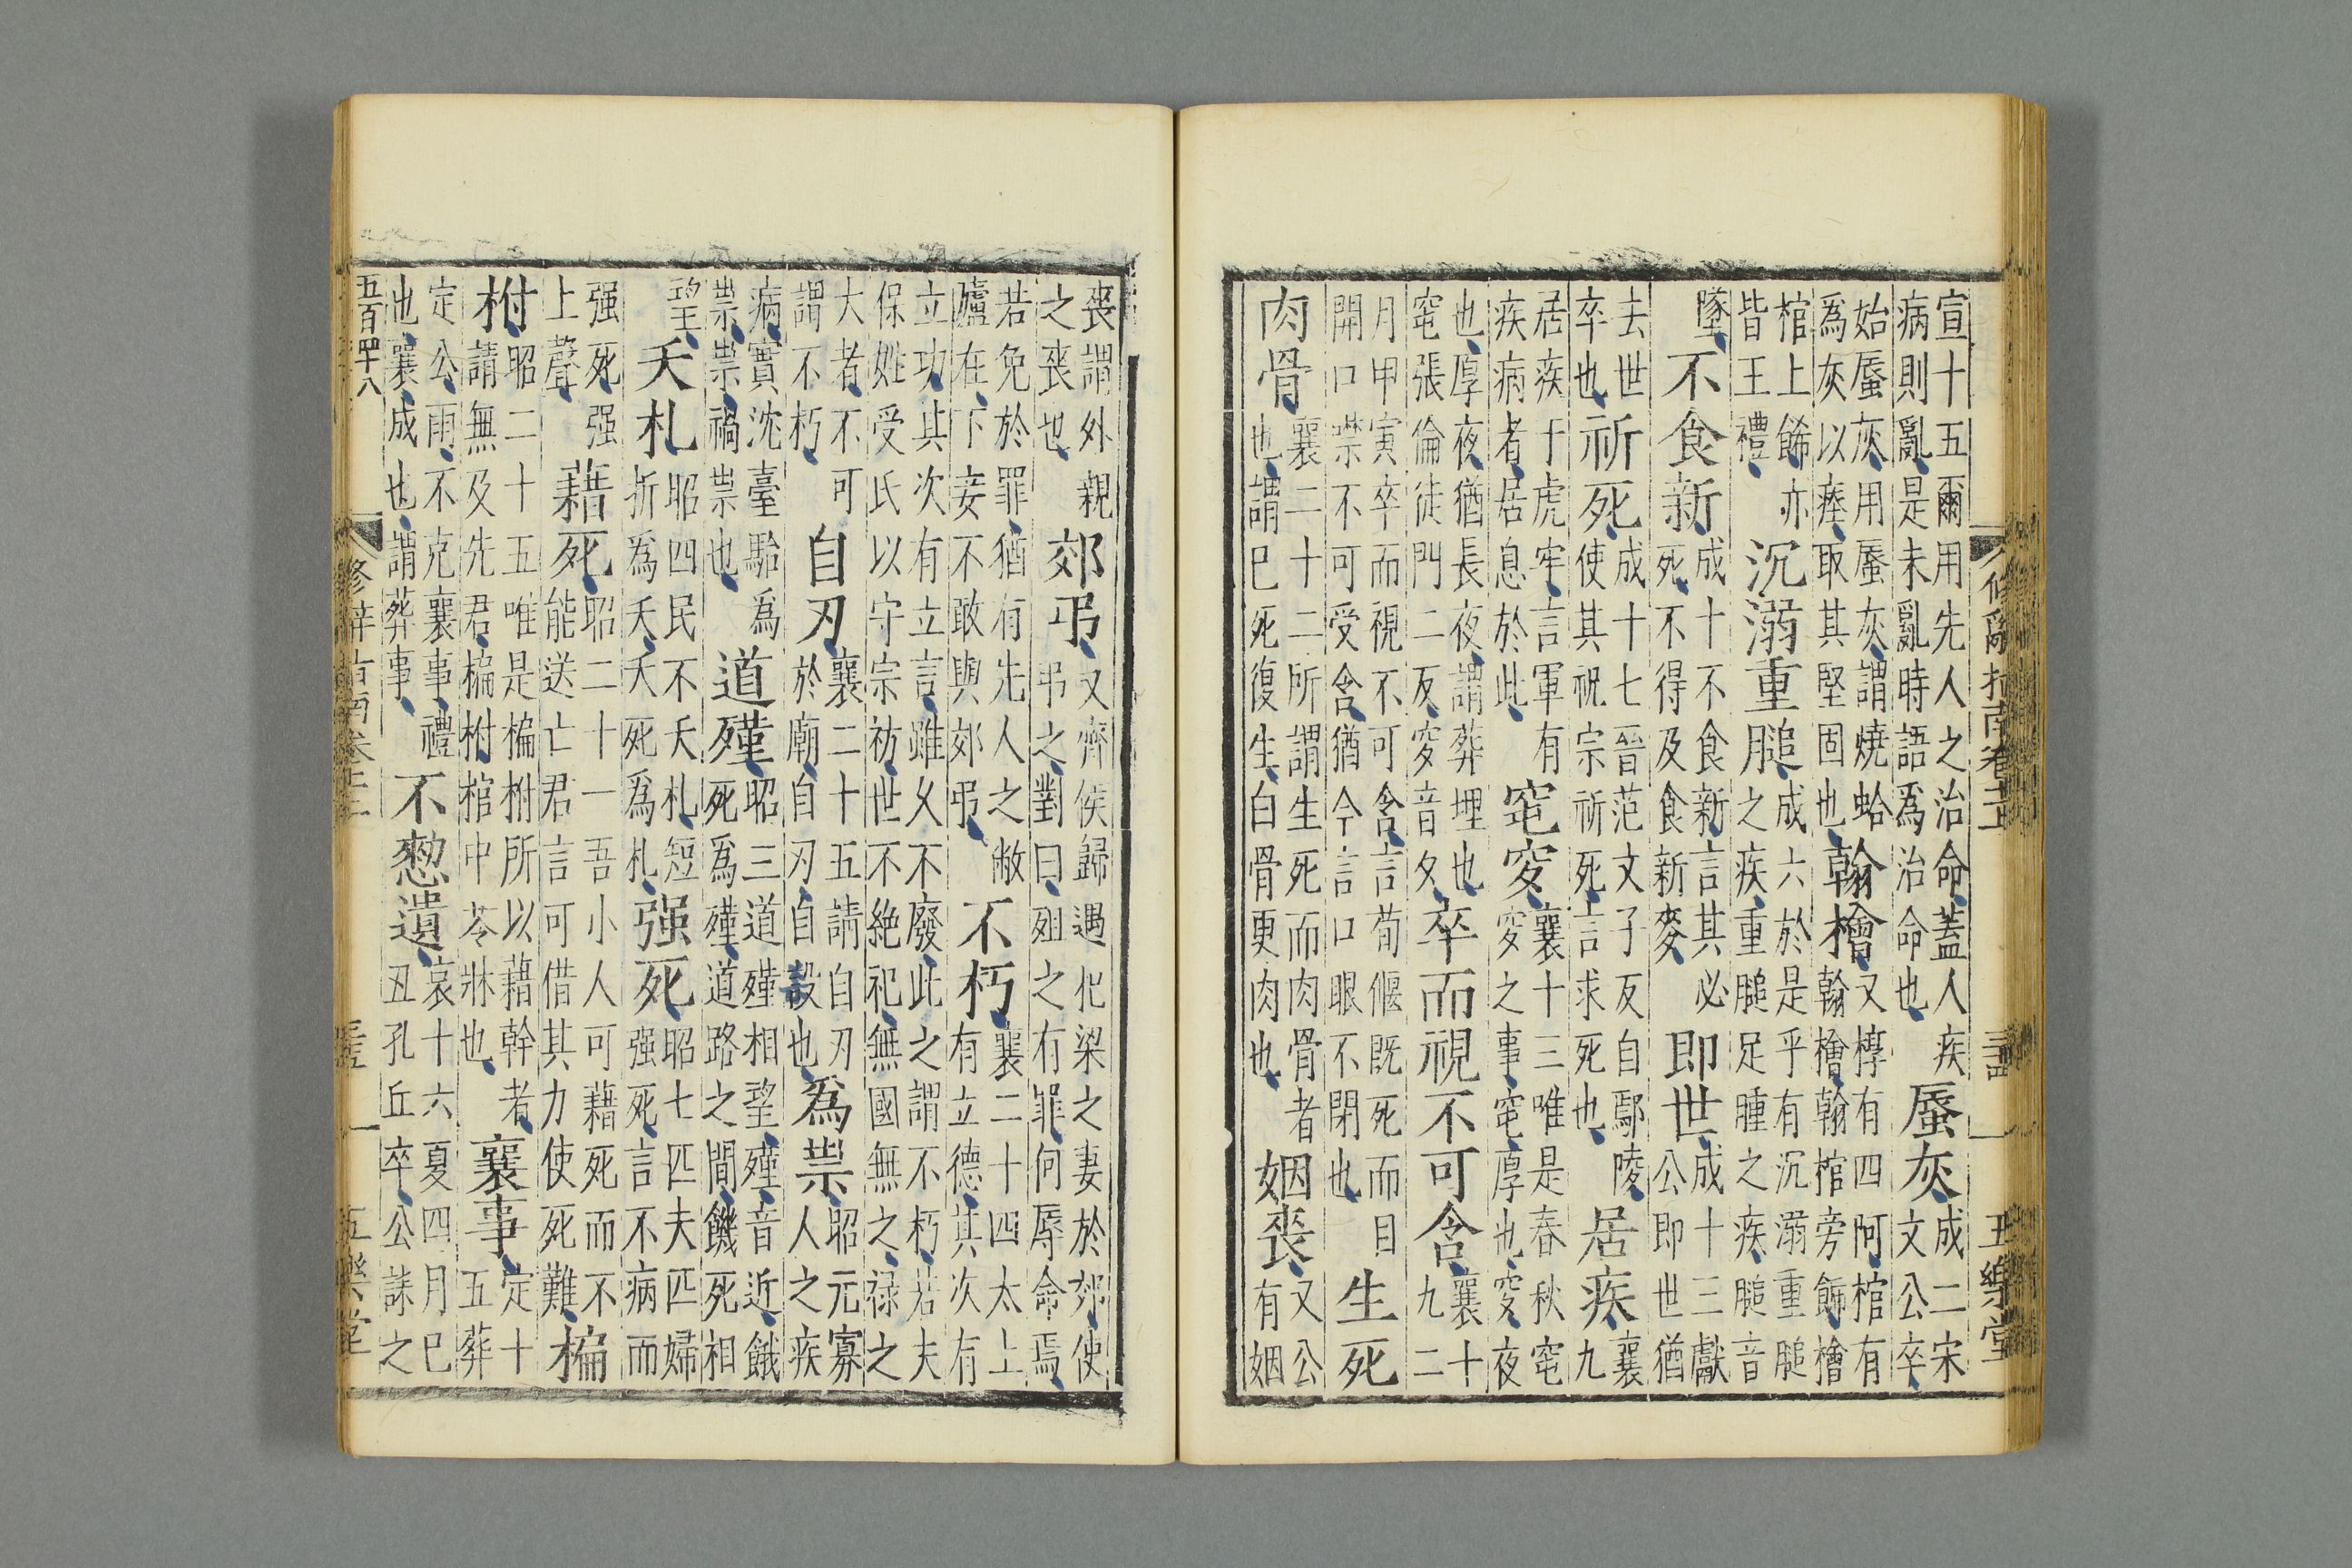 修辭指南卷 五樂堂
宣十五爾用先人之治命蓋人疾病則亂是未亂時語爲治命也蜃灰成二宋文公卒
始蜃灰用蜃灰謂燒蛤爲灰以瘞取其堅固也翰檜又椁有四阿棺有翰檜翰棺旁飾檜
棺上餙亦皆王禮沉溺重膇成六於是乎有沉溺重膇之疾重膇足腫之疾膇音
墜不食新成十不食新言其必死不得及食新麥即世成十三獻公即世猶
去世卒也祈死成十七晉范文子反自鄢陵使其祝宗祈死言求死也居疾襄九
居疾于虎牢言軍有疾病者居息於此窀穸襄十三唯是春秋窀穸之事窀厚也穸夜
也厚夜猶長夜謂葬埋也窀張倫徒門二反穸音夕卒而視不可含襄十九二
月甲寅卒而視不可含言荀偃既死而目開口噤不可受含猶今言口眼不閉也生死
肉骨襄二十二所謂生死而肉骨者也謂已死復生白骨更肉也姻喪又公有姻
喪謂外親之喪也郊弔又齊侯歸遇杞梁之妻於郊使弔之對曰殖之有罪何辱命焉
若免於罪猶有先人之敝廬在下妾不敢與郊弔不朽襄二十四太上有立德其次有
立功其次有立言雖久不廢此之謂不朽若夫保姓受氏以守宗祊世不絶祀無國無之禄之
大者不可謂不朽自刃襄二十五請自刃於廟自刃自殺也爲祟昭元寡人之疾
病實沈臺駘爲祟祟禍祟也道殣昭三道殣相望殣音近餓死爲殣道路之間饑死相
望夭札昭四民不夭札短折爲夭夭死爲札强死昭七匹夫匹婦强死言不病而
强死强上聲藉死昭二十一吾小人可藉死而不能送亡君言可借其力使死難楄
柎昭二十五唯是楄柎所以藉幹者請無及先君楄柎棺中苓牀也襄事定十五葬
定公雨不克襄事禮也襄成也謂葬事不憖遺哀十六夏四月已丑孔丘卒公誄之
五百四十八